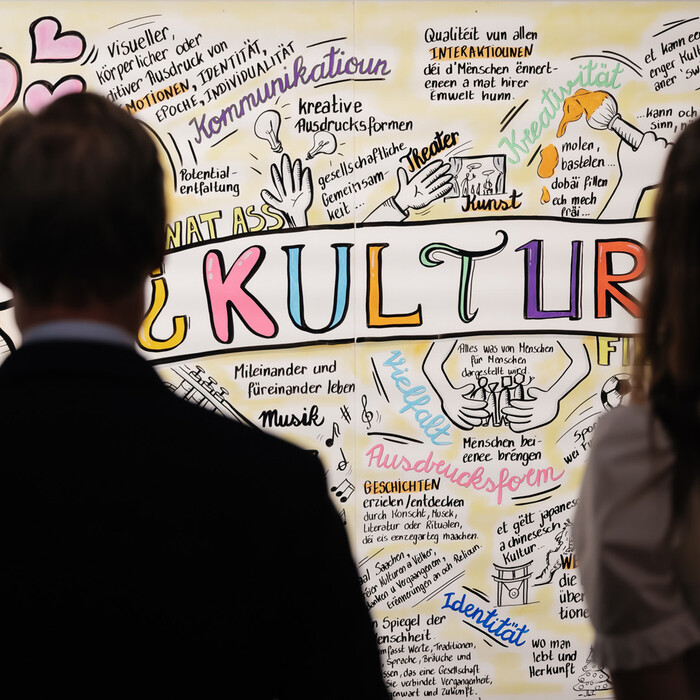 visueller,
körperlicher oder
Ausdruck von
EMOTIONEN, IDENTITÄT,
EPOCHE, INDIVIDUALITÄT
Kommunikatioun
kreative
Ausdrucksformen
Potential-
entfaltung
gesellschaftliche
Gemeinsam-
keit ...
Theater
Kunst
Qualitéit vun allen
INTERAKTIOUNEN
déi d'Mënschen ënnert-
eneen a mat hirer
Emwelt hunn.
Kreativität
molen,
bastelen ...
dobäi fillen
ech mech
fräi ...
et kann e
enger Kul
aner
...kann och
sinn,
WAT ASS
¿ KULTUR
FI
Mileinander und
füreinander leben
Musik
Vielfalt
Alles was von Menschen
für Menschen
dargestellt wird.
Menschen bei-
eenee bréngen
Ausdrucksform
GESCHICHTEN
erzielen/entdecken
durch Konscht, Musek,
Literatur oder Ritualen,
déi eis eenzegarteg maachen.
et gëtt japanesc
a chinesesch
Kultur...
Identität
n Spiegel der
enschheit.
mfasst Werte, Traditionen,
Sprache, Bräuche und
ssen, das eine Gesellschaft
Sie verbindet Vergangenheit,
enwart und Zukunft.
wo man
lebt und
Herkunft
die
über
tione